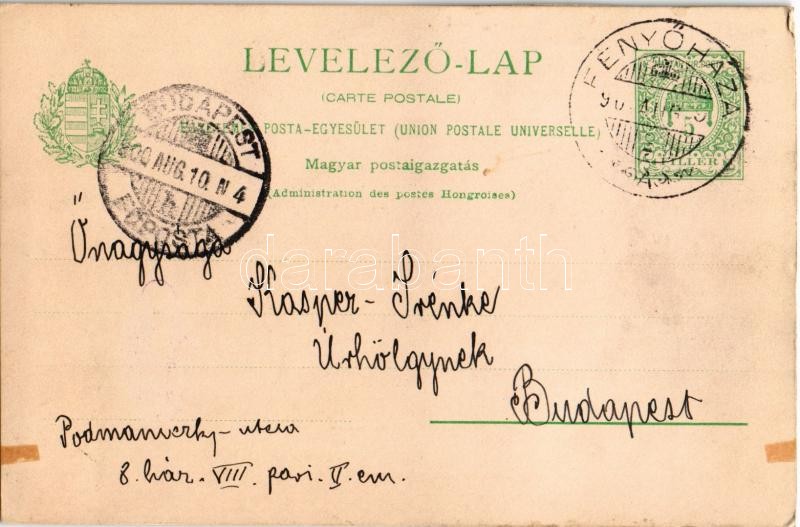 LEVELEZŐ-LAP
(CARTE POSTALE)
POSTA-EGYESÜLET (UNION POSTALE UNIVERSELLE)
Magyar postaigazgatás
(Administration des postes Hongroises)
BUDAPEST
900 AUG. 10. N 4
FŐPOSTA
FENYŐHÁZA
5
Őnagysága
Kasper-Irénke
Úrhölgynek
Budapest
Podmaniczky-utcza
8. ház. VIII. II. em.
darabanth